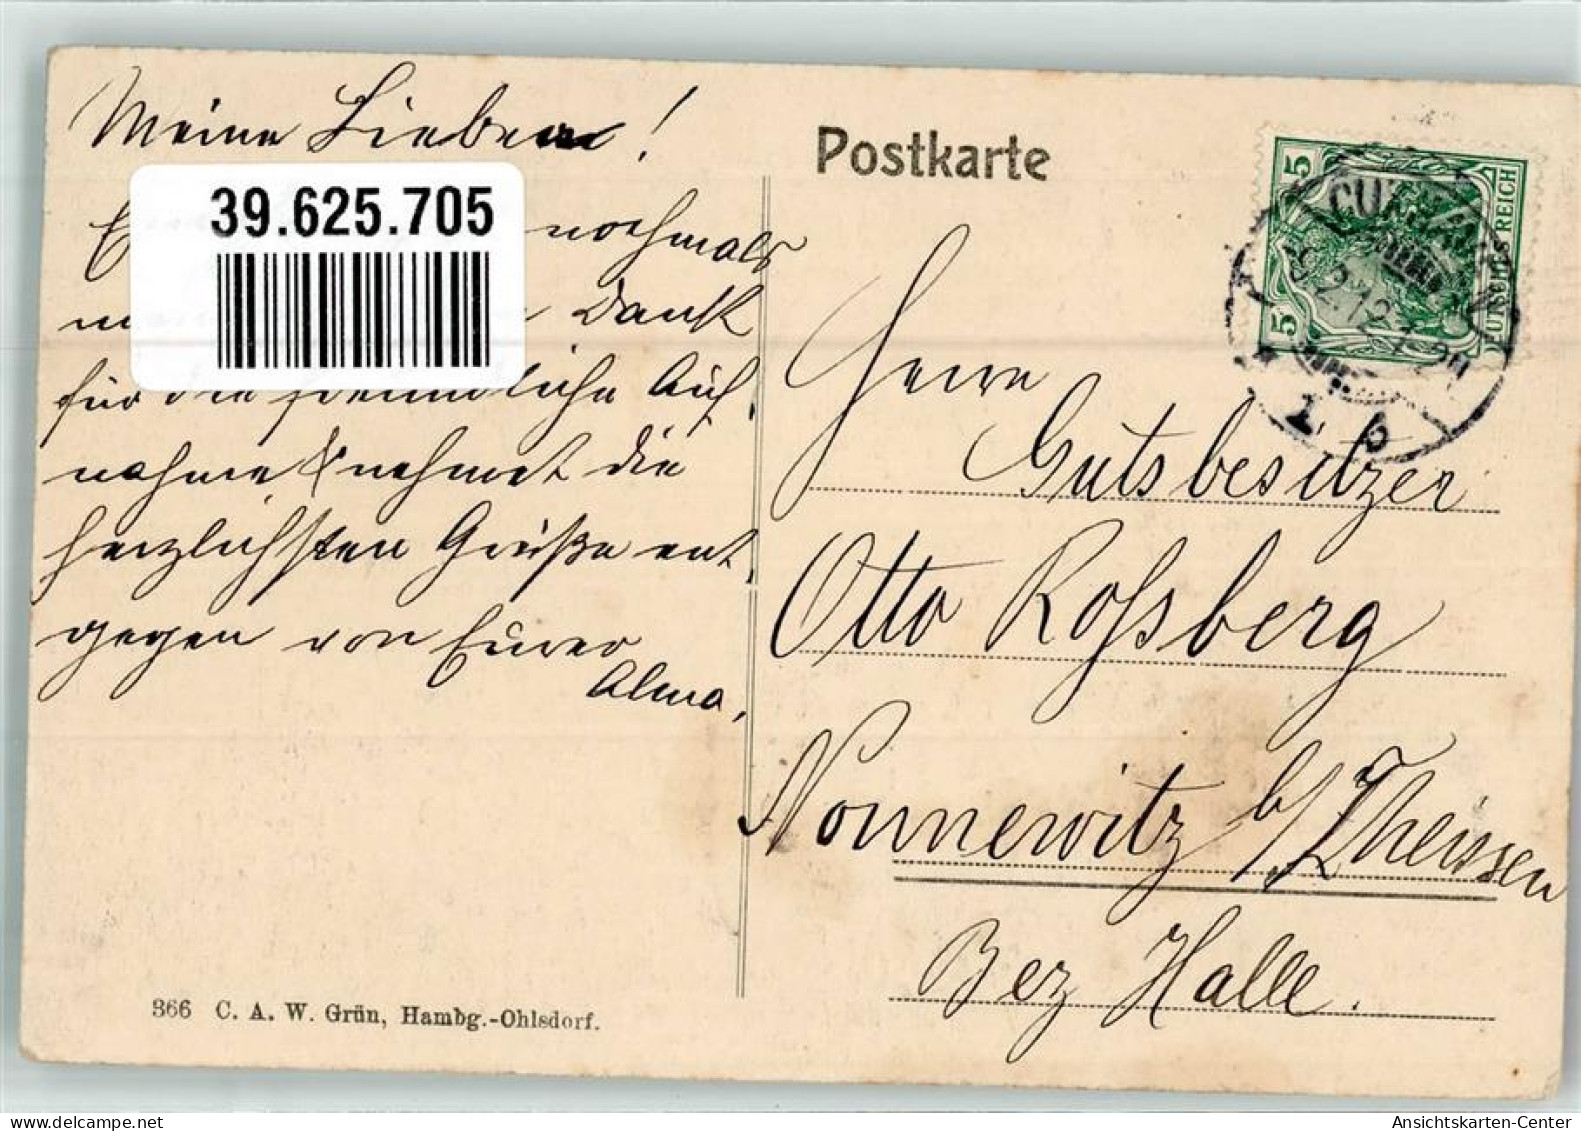 Meine Lieben!
39.625.705
nochmals
Dank
für die freundliche Auf,
nahme & nehmet die
herzlichsten Grüße ent,
gegen von Eurer
Alma,
366 C. A. W. Grün, Hambg.-Ohlsdorf.
Postkarte
5 5
DEUTSCHES REICH
CUXHAVEN
1 b
Herrn
Gutsbesitzer
Otto Roßberg
Nonnewitz b/Theissen
Bez Halle.
Ansichtskarten-Center